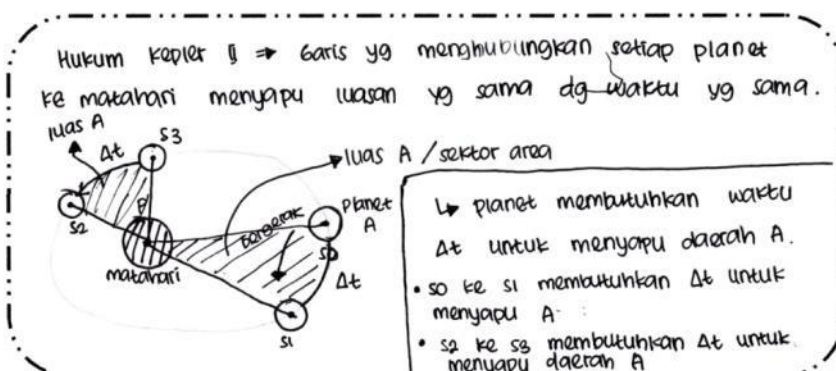 Hukum Kepler II ⇒ Garis yg menghubungkan setiap planet
ke matahari menyapu luasan yg sama dg waktu yg sama.
luas A
Δt
S3
S2
matahari
luas A / sektor area
bergerak
planet
A
S0
Δt
S1
↳ planet membutuhkan waktu
Δt untuk menyapu daerah A.
• S0 ke S1 membutuhkan Δt untuk
menyapu A
• S2 ke S3 membutuhkan Δt untuk
menyapu daerah A